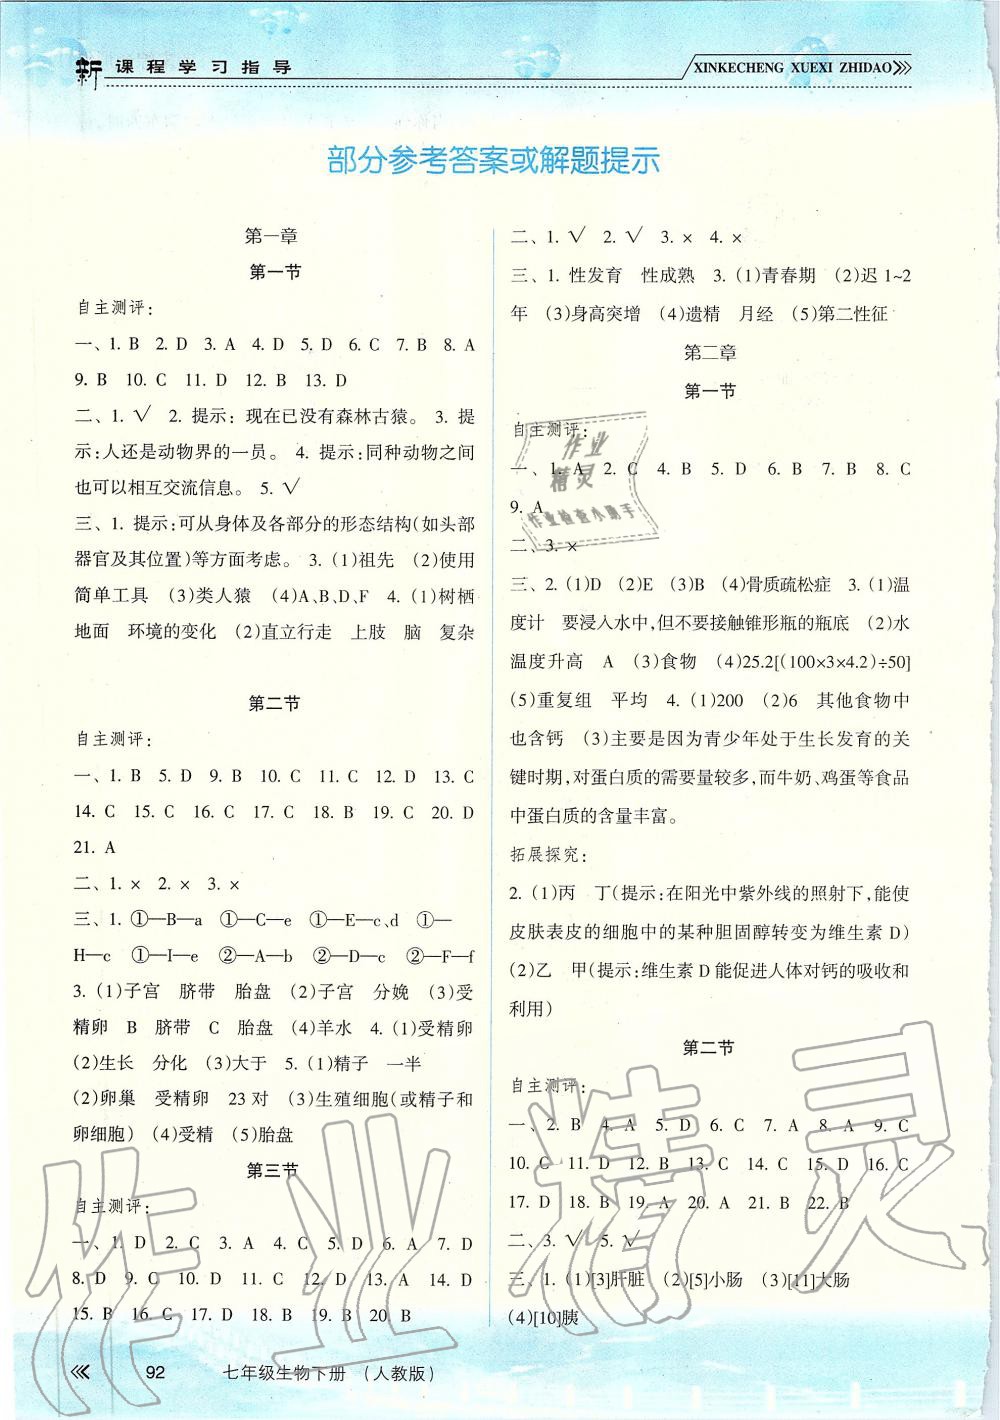 新课程学习指导
XINKECHENG XUEXI ZHIDAO
部分参考答案或解题提示
第一章
第一节
自主测评:
一、1. B 2. D 3. A 4. D 5. D 6. C 7. B 8. A
9. B 10. C 11. D 12. B 13. D
二、1. √ 2. 提示: 现在已没有森林古猿。 3. 提
示:人还是动物界的一员。 4. 提示:同种动物之间
也可以相互交流信息。 5. √
三、1. 提示:可从身体及各部分的形态结构(如头部
器官及其位置)等方面考虑。 3. (1)祖先 (2)使用
简单工具 (3)类人猿 (4)A、B、D、F 4. (1)树栖
地面 环境的变化 (2)直立行走 上肢 脑 复杂
第二节
自主测评:
一、1. B 5. D 9. B 10. C 11. C 12. D 13. C
14. C 15. C 16. C 17. C 18. B 19. C 20. D
21. A
二、1. × 2. × 3. ×
三、1. ①—B—a ①—C—e ①—E—c、d ①—
H—c ①—I—e ②—A—b ②—D—c ②—F—f
3. (1)子宫 脐带 胎盘 (2)子宫 分娩 (3)受
精卵 B 脐带 C 胎盘 (4)羊水 4. (1)受精卵
(2)生长 分化 (3)大于 5. (1)精子 一半
(2)卵巢 受精卵 23 对 (3)生殖细胞(或精子和
卵细胞) (4)受精 (5)胎盘
第三节
自主测评:
一、1. D 2. C 3. A 4. C 5. D 6. A 7. D
8. D 9. C 10. D 11. C 12. D 13. A 14. D
15. B 16. C 17. D 18. B 19. B 20. B
二、1. √ 2. √ 3. × 4. ×
三、1. 性发育 性成熟 3. (1)青春期 (2)迟 1~2
年 (3)身高突增 (4)遗精 月经 (5)第二性征
第二章
第一节
自主测评:
一、1. A 2. C 4. B 5. D 6. B 7. B 8. C
9. A
二、3. ×
三、2. (1)D (2)E (3)B (4)骨质疏松症 3. (1)温
度计 要浸入水中,但不要接触锥形瓶的瓶底 (2)水
温度升高 A (3)食物 (4)25.2[(100×3×4.2)÷50]
(5)重复组 平均 4. (1)200 (2)6 其他食物中
也含钙 (3)主要是因为青少年处于生长发育的关
键时期,对蛋白质的需要量较多,而牛奶、鸡蛋等食品
中蛋白质的含量丰富。
拓展探究:
2. (1)丙 丁(提示:在阳光中紫外线的照射下,能使
皮肤表皮的细胞中的某种胆固醇转变为维生素 D)
(2)乙 甲(提示:维生素 D 能促进人体对钙的吸收和
利用)
第二节
自主测评:
一、2. B 4. A 5. D 6. C 7. A 8. A 9. C
10. C 11. D 12. B 13. C 14. C 15. D 16. C
17. D 18. B 19. A 20. A 21. B 22. B
二、3. √ 5. √
三、1. (1)[3]肝脏 (2)[5]小肠 (3)[11]大肠
(4)[10]胰
92 七年级生物下册 (人教版)
作业
精灵
作业检查小助手
作业精灵